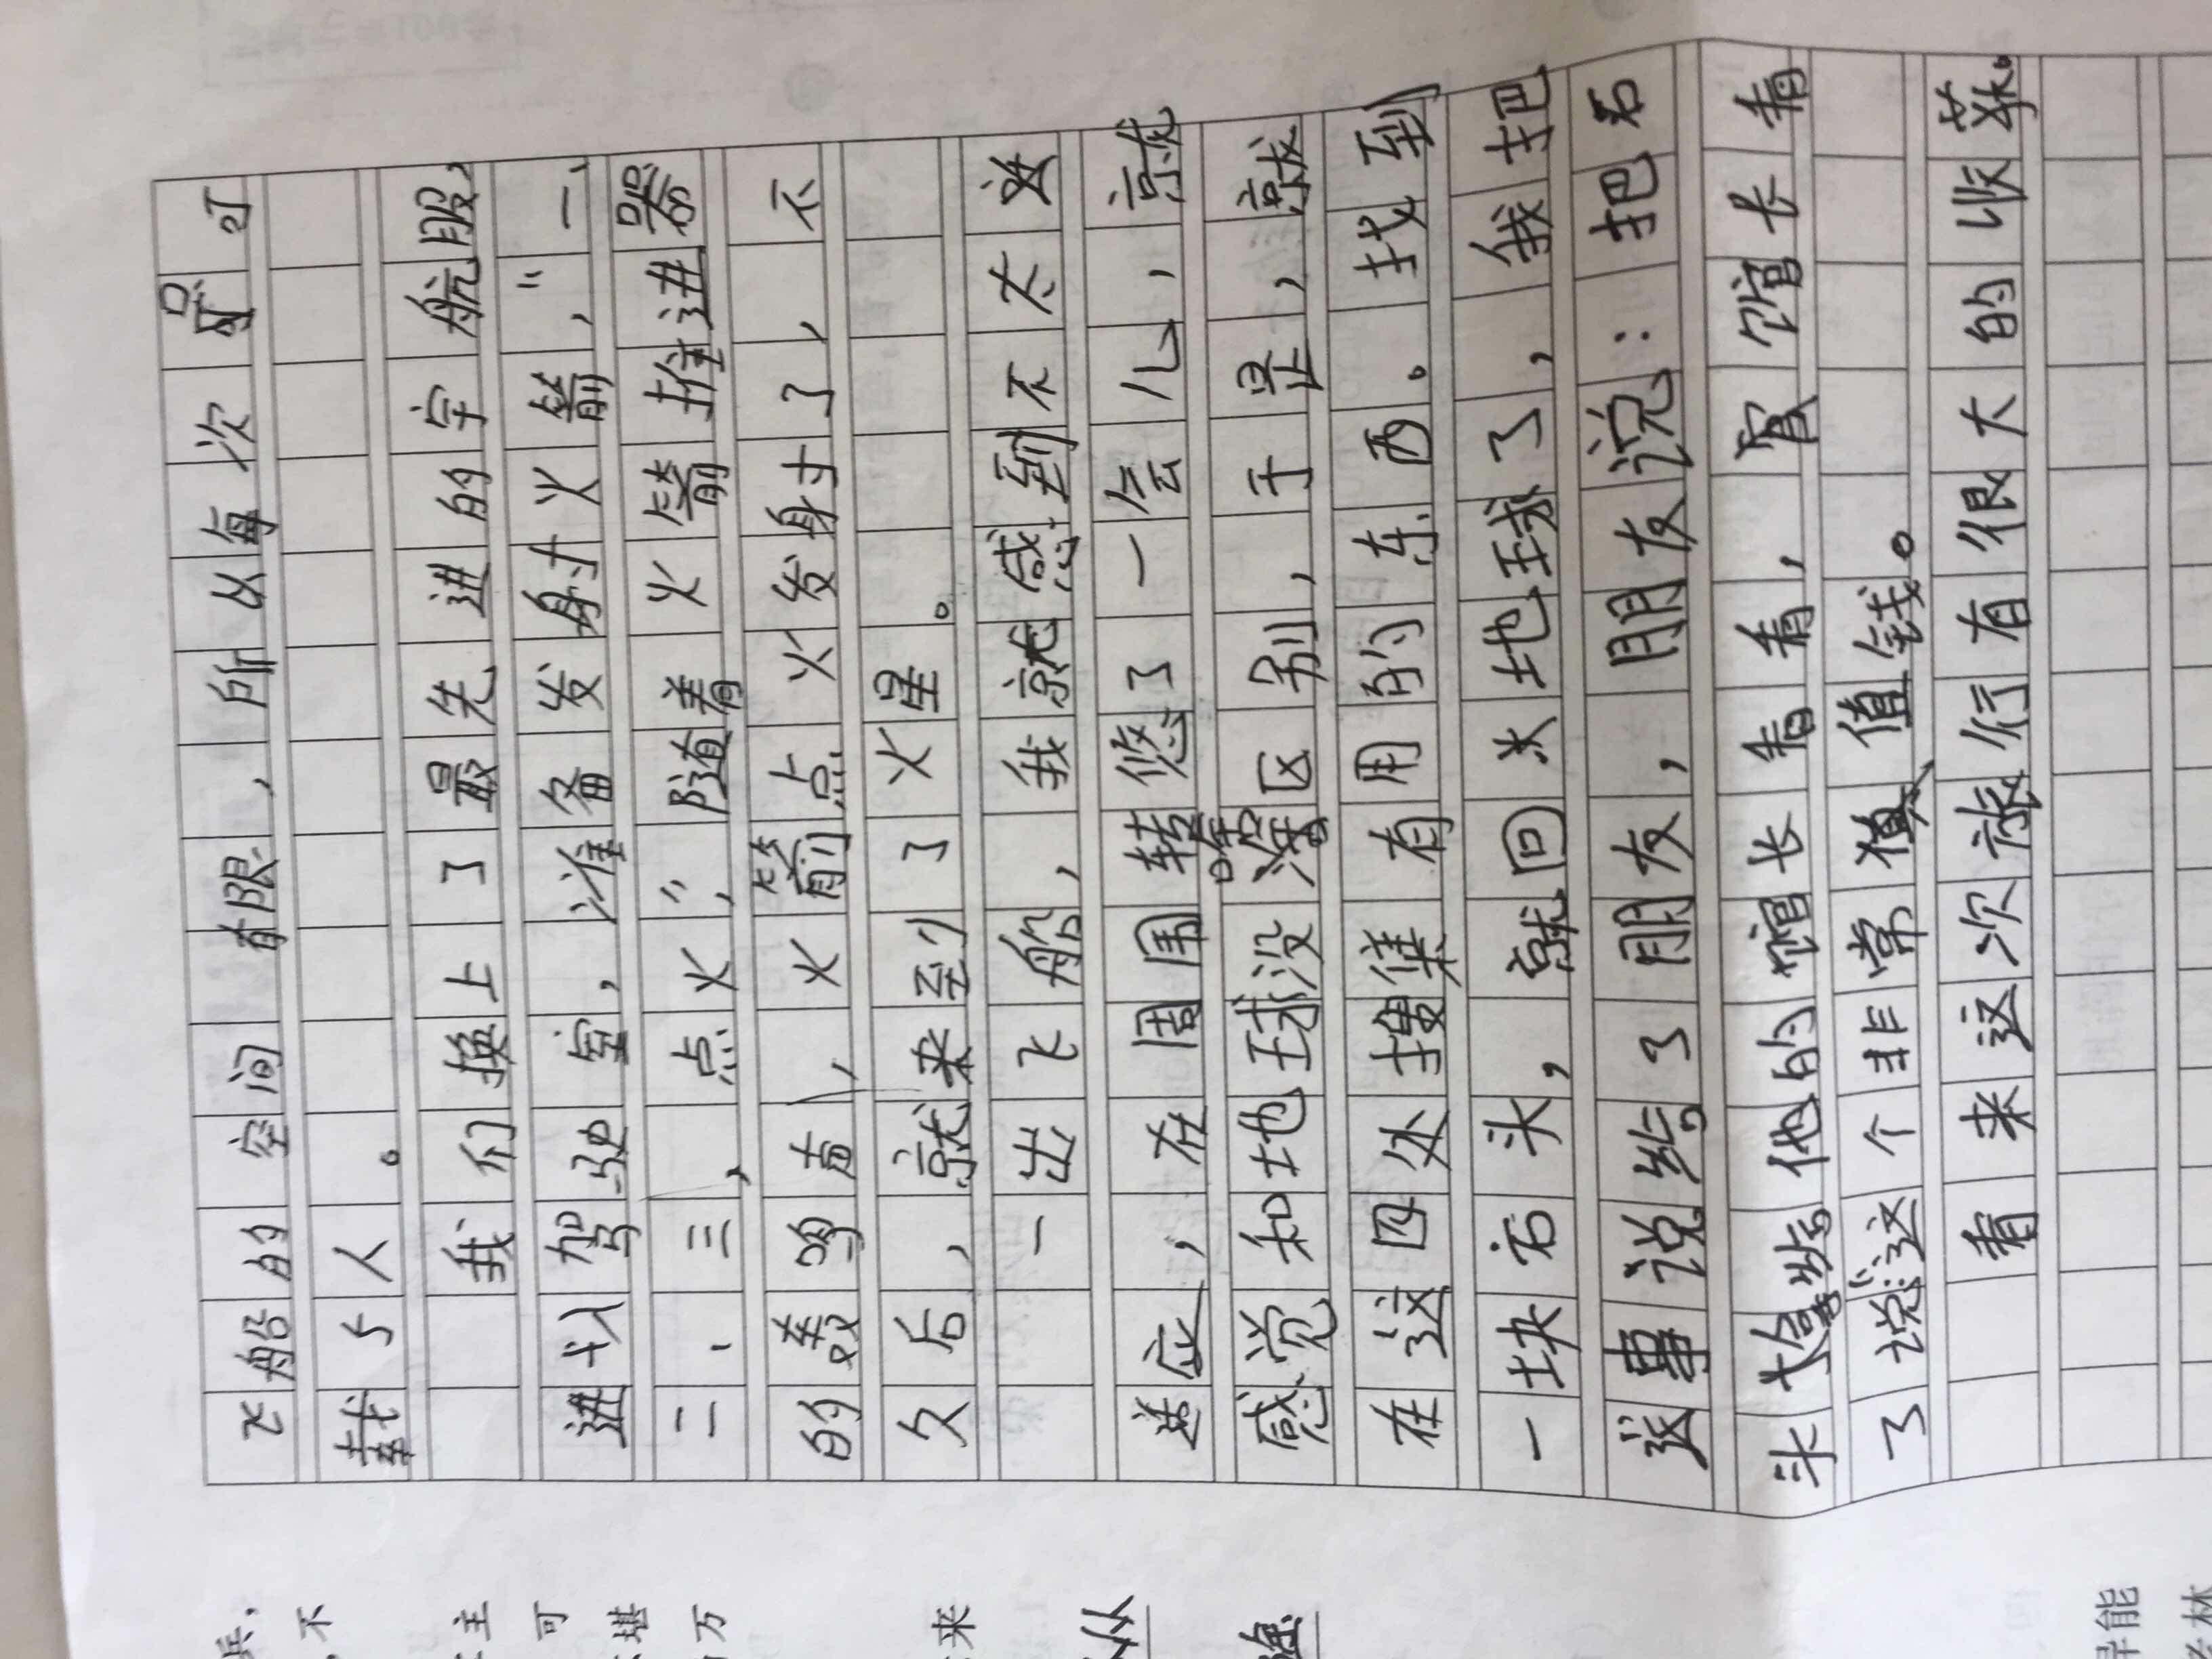 飞船的空间有限，所以每次可
载5人。
我们换上了最先进的宇航服，
进认驾驶室，准备发射火箭，"一、
二、三，点火，"随着火箭推进器
的轰鸣声，火箭点火发射了，不
久后，就来到了火星。
一出飞船，我就感到不太
适应，在周围转悠了一会儿，就
感觉和地球没啥区别，于是，就
在这四处搜集有用的东西。找到
一块石头，就回来地球了，我把
这事说给了朋友，朋友说：把石
头拿给他的馆长看看，馆长看
了说：这个非常值钱。
看来这次旅行有很大的收获。
兵，
不
主
可
堪
万
来
从
急
异能